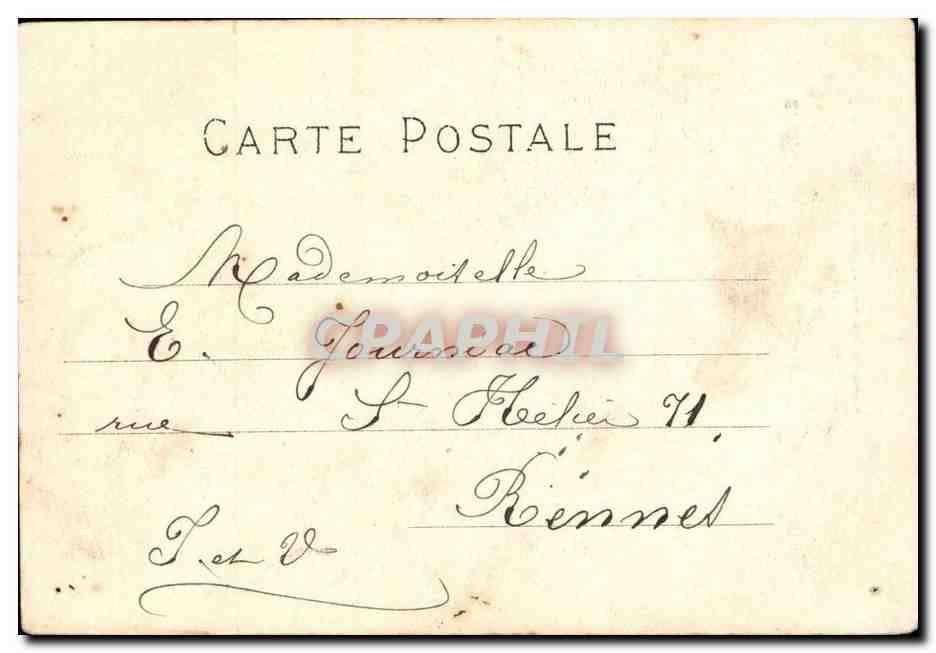 CARTE POSTALE
Mademoiselle
E. Journeal
rue St Helier 71
Rennes
I et V
GRAPHIL